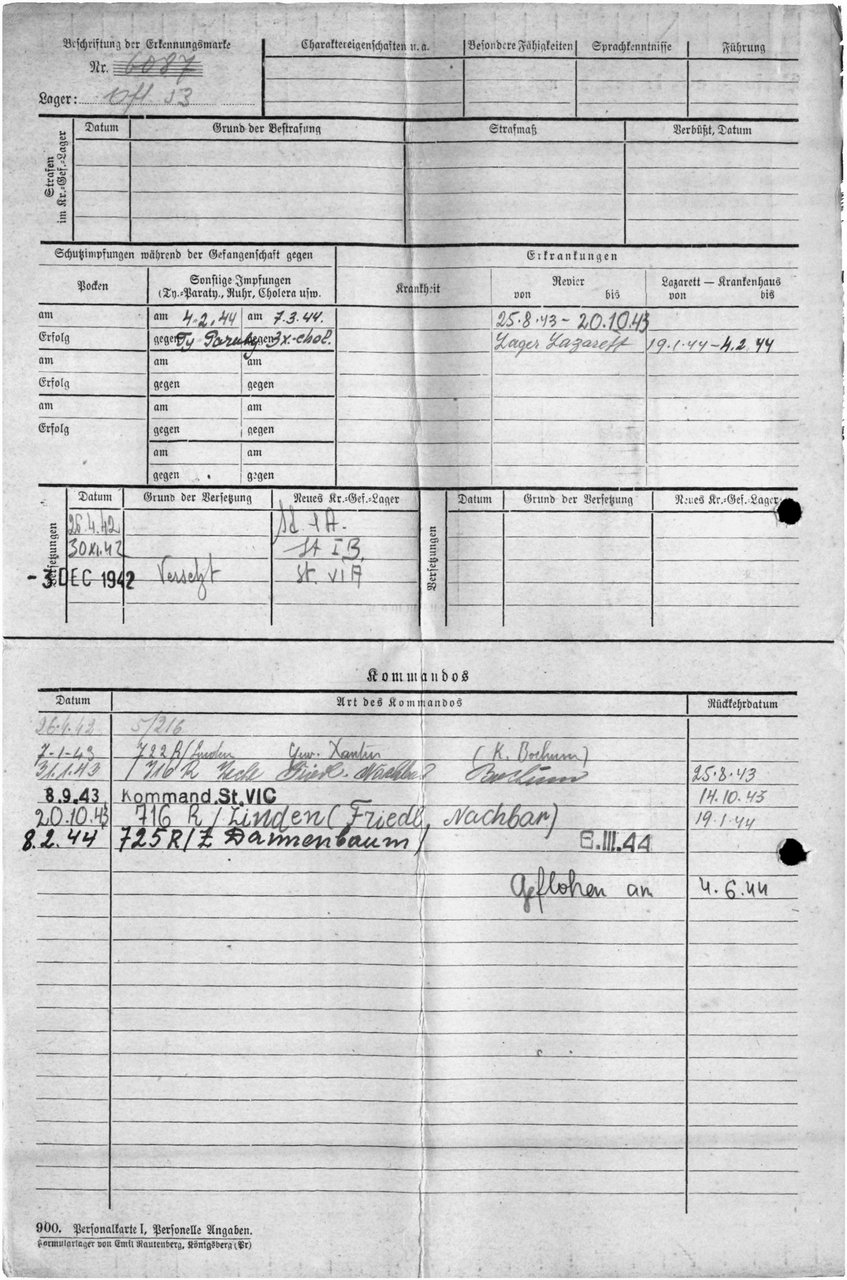 Beschriftung der Erkennungsmarke
Nr. 6087
Lager:
Charaktereigenschaften u. a. Besondere Fähigkeiten Sprachkenntnisse Führung
Strafen im Kr.=Gef.=Lager
Datum Grund der Bestrafung Strafmaß Verbüßt, Datum
Schutzimpfungen während der Gefangenschaft gegen
Erkrankungen
Pocken
Sonstige Impfungen
(Ty.=Paraty., Ruhr, Cholera usw.
Krankheit
Revier
von bis
Lazarett — Krankenhaus
von bis
am am 4.2.44 am 7.3.44. 25.8.43 – 20.10.43
Erfolg gegen Ty gegen 3x.-chol. Lager Lazarett 19.1.44–4.2.44
am am am
Erfolg gegen gegen
am am am
Erfolg gegen gegen
am am
gegen gegen
Versetzungen
Datum Grund der Versetzung Neues Kr.=Gef.=Lager
26.4.42 IA.
30 XI. 42 St IB.
- 3 DEC 1942 Versetzt St. VIA
Versetzungen
Datum Grund der Versetzung Neues Kr.=Gef.=Lager
Kommandos
Datum Art des Kommandos Rückkehrdatum
5/216
7-1-43 722 R/Linden Gew. Xanten (K. Bochum)
31.1.43 716 R Zeche Friedl. Nachbar Bochum 25.8.43
8.9.43 Kommand. St. VIC 14.10.43
20.10.43 716 R/Linden (Friedl. Nachbar) 19.1.44
8.2.44 725 R/Z Dannenbaum/ 6.III.44
Geflohen am 4.6.44
900. Personalkarte I, Personelle Angaben.
Formularlager von Emil Rautenberg, Königsberg (Pr)